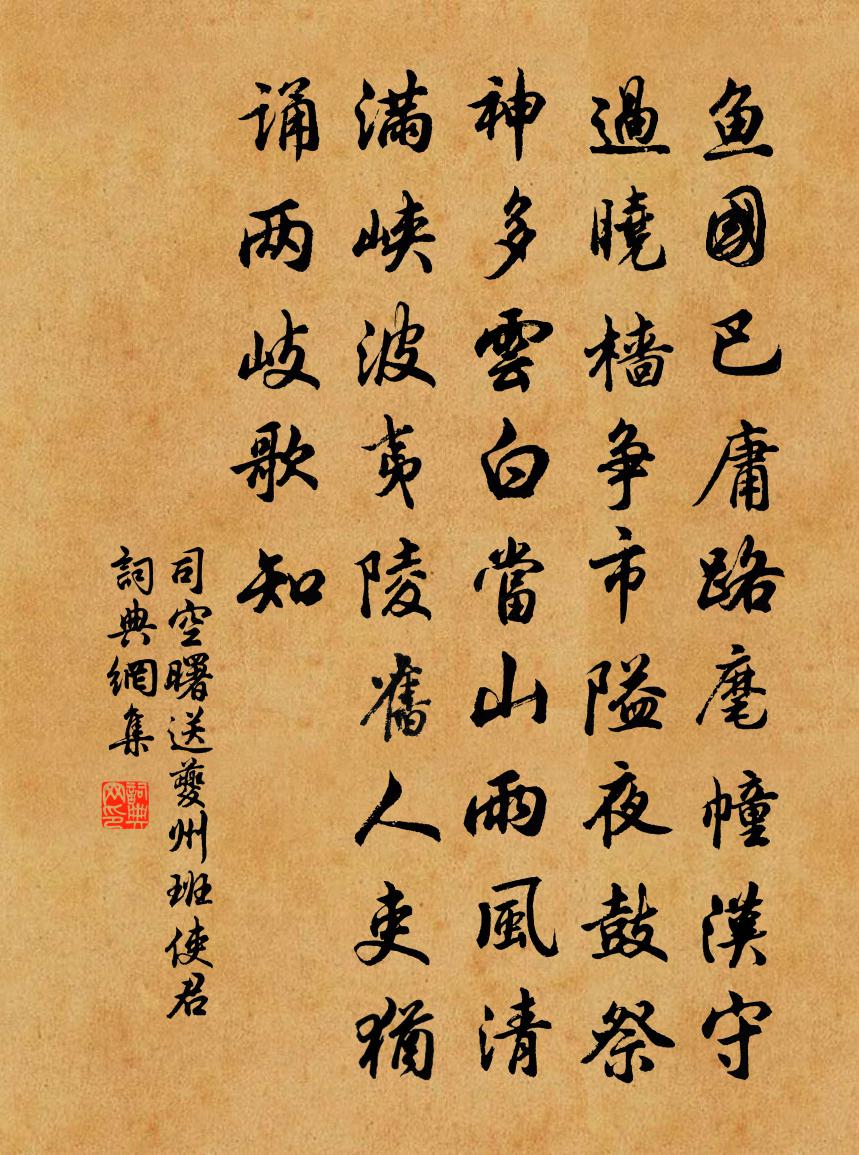 鱼國巴庸路麾幢漢守
過曉樯争市隘夜鼓祭
神多雲白當山雨風清
满峡波夷陵舊人吏猶
诵两岐歌知
司空曙送夔州班使君
詞典網集
詞典网印